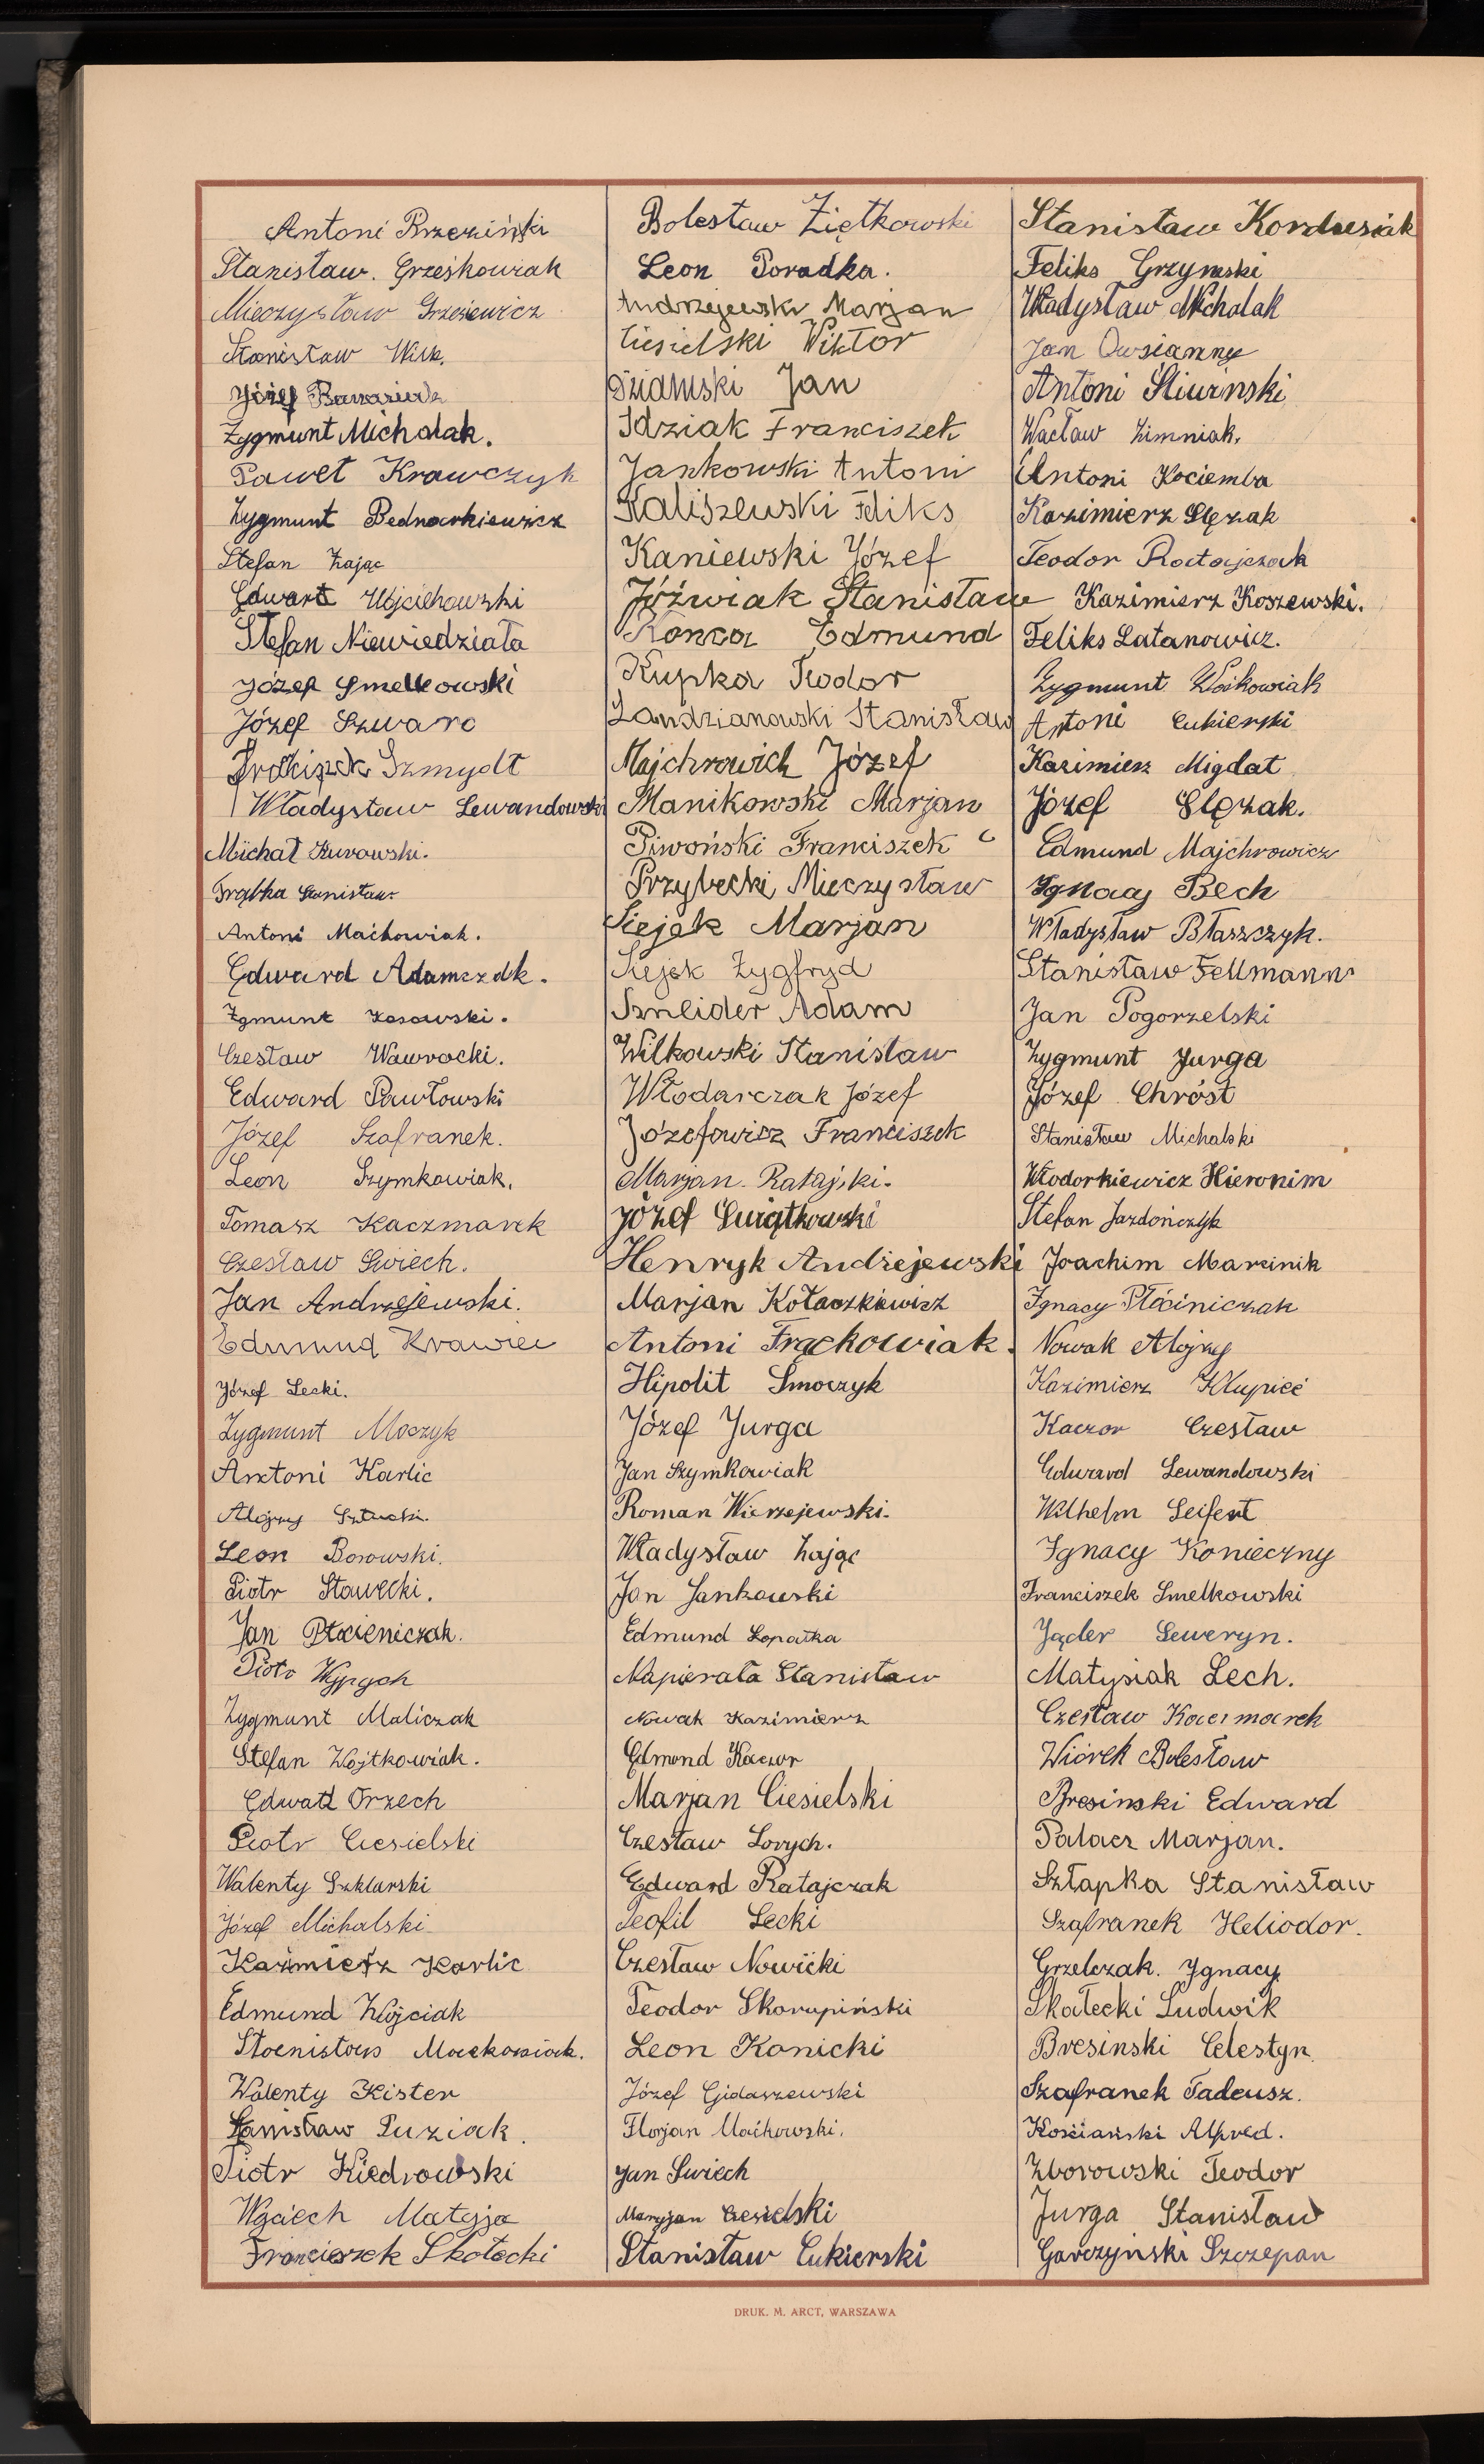 Antoni Brzeziński
Stanisław. Grześkowiak
Mieczysław Grzesiewicz
Stanisław Wilk.
Józef
Zygmunt Michalak.
Paweł Krawczyk
Zygmunt Bednarkiewicz
Stefan Zając
Edward Wojciechowski
Stefan Niewiedziała
Józef Smelkowski
Józef Szwarc
Franciszek Szmydt
Władysław Lewandowski
Michał Kurowski.
Frątka Stanisław.
Antoni Maćkowiak.
Edward Adamczak.
Zgmunt Kosowski.
Czesław Wawrocki.
Edward Pawłowski
Józef Szafranek.
Leon Szymkowiak.
Tomasz Kaczmarek
Czesław Świech.
Jan Andrzejewski.
Edmund Krawiec
Józef Lecki.
Zygmunt Moczyk
Antoni Karlic
Alojzy Sztucki.
Leon Borowski.
Piotr Stawecki.
Jan Płocieniczak.
Piotr Wypych
Zygmunt Maliczak
Stefan Wojtkowiak.
Edward Orzech
Piotr Ciesielski
Walenty Szklarski
Józef Michalski
Kaźmierz Karlic
Edmund Wojciak
Stanisław Maćkowiak.
Walenty Kister
Stanisław Puziak.
Piotr Kiedrowski
Wojciech Matyja
Franciszek Skołecki
Bolesław Ziętkowski
Leon Poradka.
Andrzejewski Marjan
Ciesielski Wiktor
Dziamski Jan
Idziak Franciszek
Jankowski Antoni
Kaliszewski Feliks
Kaniewski Józef
Jóźwiak Stanisław
Konca Edmund
Kupka Teodor
Landzianowski Stanisław
Majchrowich Józef
Manikowski Marjan
Piwoński Franciszek
Przybecki Mieczysław
Siejek Marjan
Siejek Zygfryd
Szneider Adam
Wilkowski Stanisław
Włodarczak Józef
Józefowicz Franciszek
Marjan. Ratajski.
Józef Świątkowski
Henryk Andrzejewski
Marjan Kołaczkiewicz
Antoni Frąckowiak.
Hipolit Smoczyk
Józef Jurga
Jan Szymkowiak
Roman Wierzejewski.
Władysław Zając
Jan Jankowski
Edmund Łopatka
Napierała Stanisław
Nowak Kazimierz
Edmund Kaczor
Marjan Ciesielski
Czesław Lorych.
Edward Ratajczak
Teofil Lecki
Czesław Nowicki
Teodor Skorupiński
Leon Konicki
Józef Gidaszewski
Florjan Maćkowski.
Jan Świech
Maryjan Ciesielski
Stanisław Cukierski
Stanisław Kordusiak
Feliks Grzymski
Władysław Michalak
Jan Owsianny
Antoni Śliwinski
Wacław Zimniak.
Antoni Kociemba
Kazimierz Ślęzak
Teodor Ratajczak
Kazimierz Koszewski.
Feliks Łatanowicz.
Zygmunt Wośkowiak
Antoni Cukierski
Kazimierz Migdał
Józef Ślęzak.
Edmund Majchrowicz
Ignacy Bech
Władysław Błaszczyk.
Stanisław Fellmann
Jan Pogorzelski
Zygmunt Jurga
Józef Chróst
Stanisław Michalski
Włodorkiewicz Hieronim
Stefan Jazdończyk
Joachim Marcinik
Ignacy Płóciniczak
Nowak Alojzy
Kazimierz Klupieć
Kaczor Czesław
Edward Lewandowski
Wilhelm Seifert
Ignacy Konieczny
Franciszek Smelkowski
Jąder Seweryn.
Matysiak Lech.
Czesław Kaczmarek
Wiórek Bolesław
Bresinski Edward
Palacz Marjan.
Szłapka Stanisław
Szafranek Heliodor.
Grzelczak. Ignacy
Skałecki Ludwik
Bresinski Celestyn
Szafranek Tadeusz.
Kościański Alfred.
Zborowski Teodor
Jurga Stanisław
Garczyński Szczepan
DRUK. M. ARCT, WARSZAWA